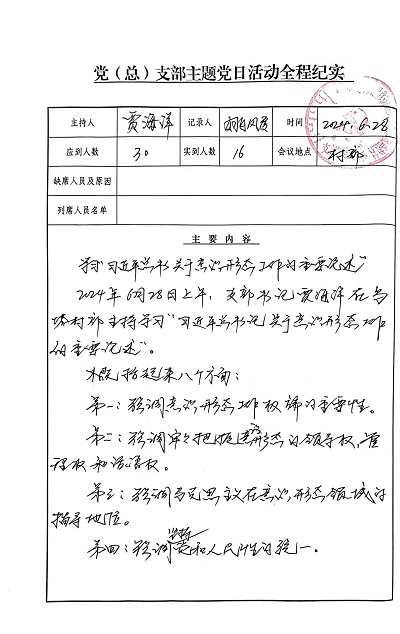 党（总）支部主题党日活动全程纪实
主持人 贾海洋 记录人 时间 2024.6.28
应到人数 30 实到人数 16 会议地点 村部
缺席人员及原因
列席人员名单
主要内容
学习“习近平总书记关于意识形态工作的重要论述”
2024年6月28日上午，支部书记贾海洋在
村部主持学习“习近平总书记关于意识形态工作
的重要论述”。
概括起来八个方面：
第一：强调意识形态工作极端的重要性。
第二：强调牢牢把握意识形态的领导权，管
理权和话语权。
第三：强调马克思主义在意识形态领域的
指导地位。
第四：强调坚持党和人民性的统一。